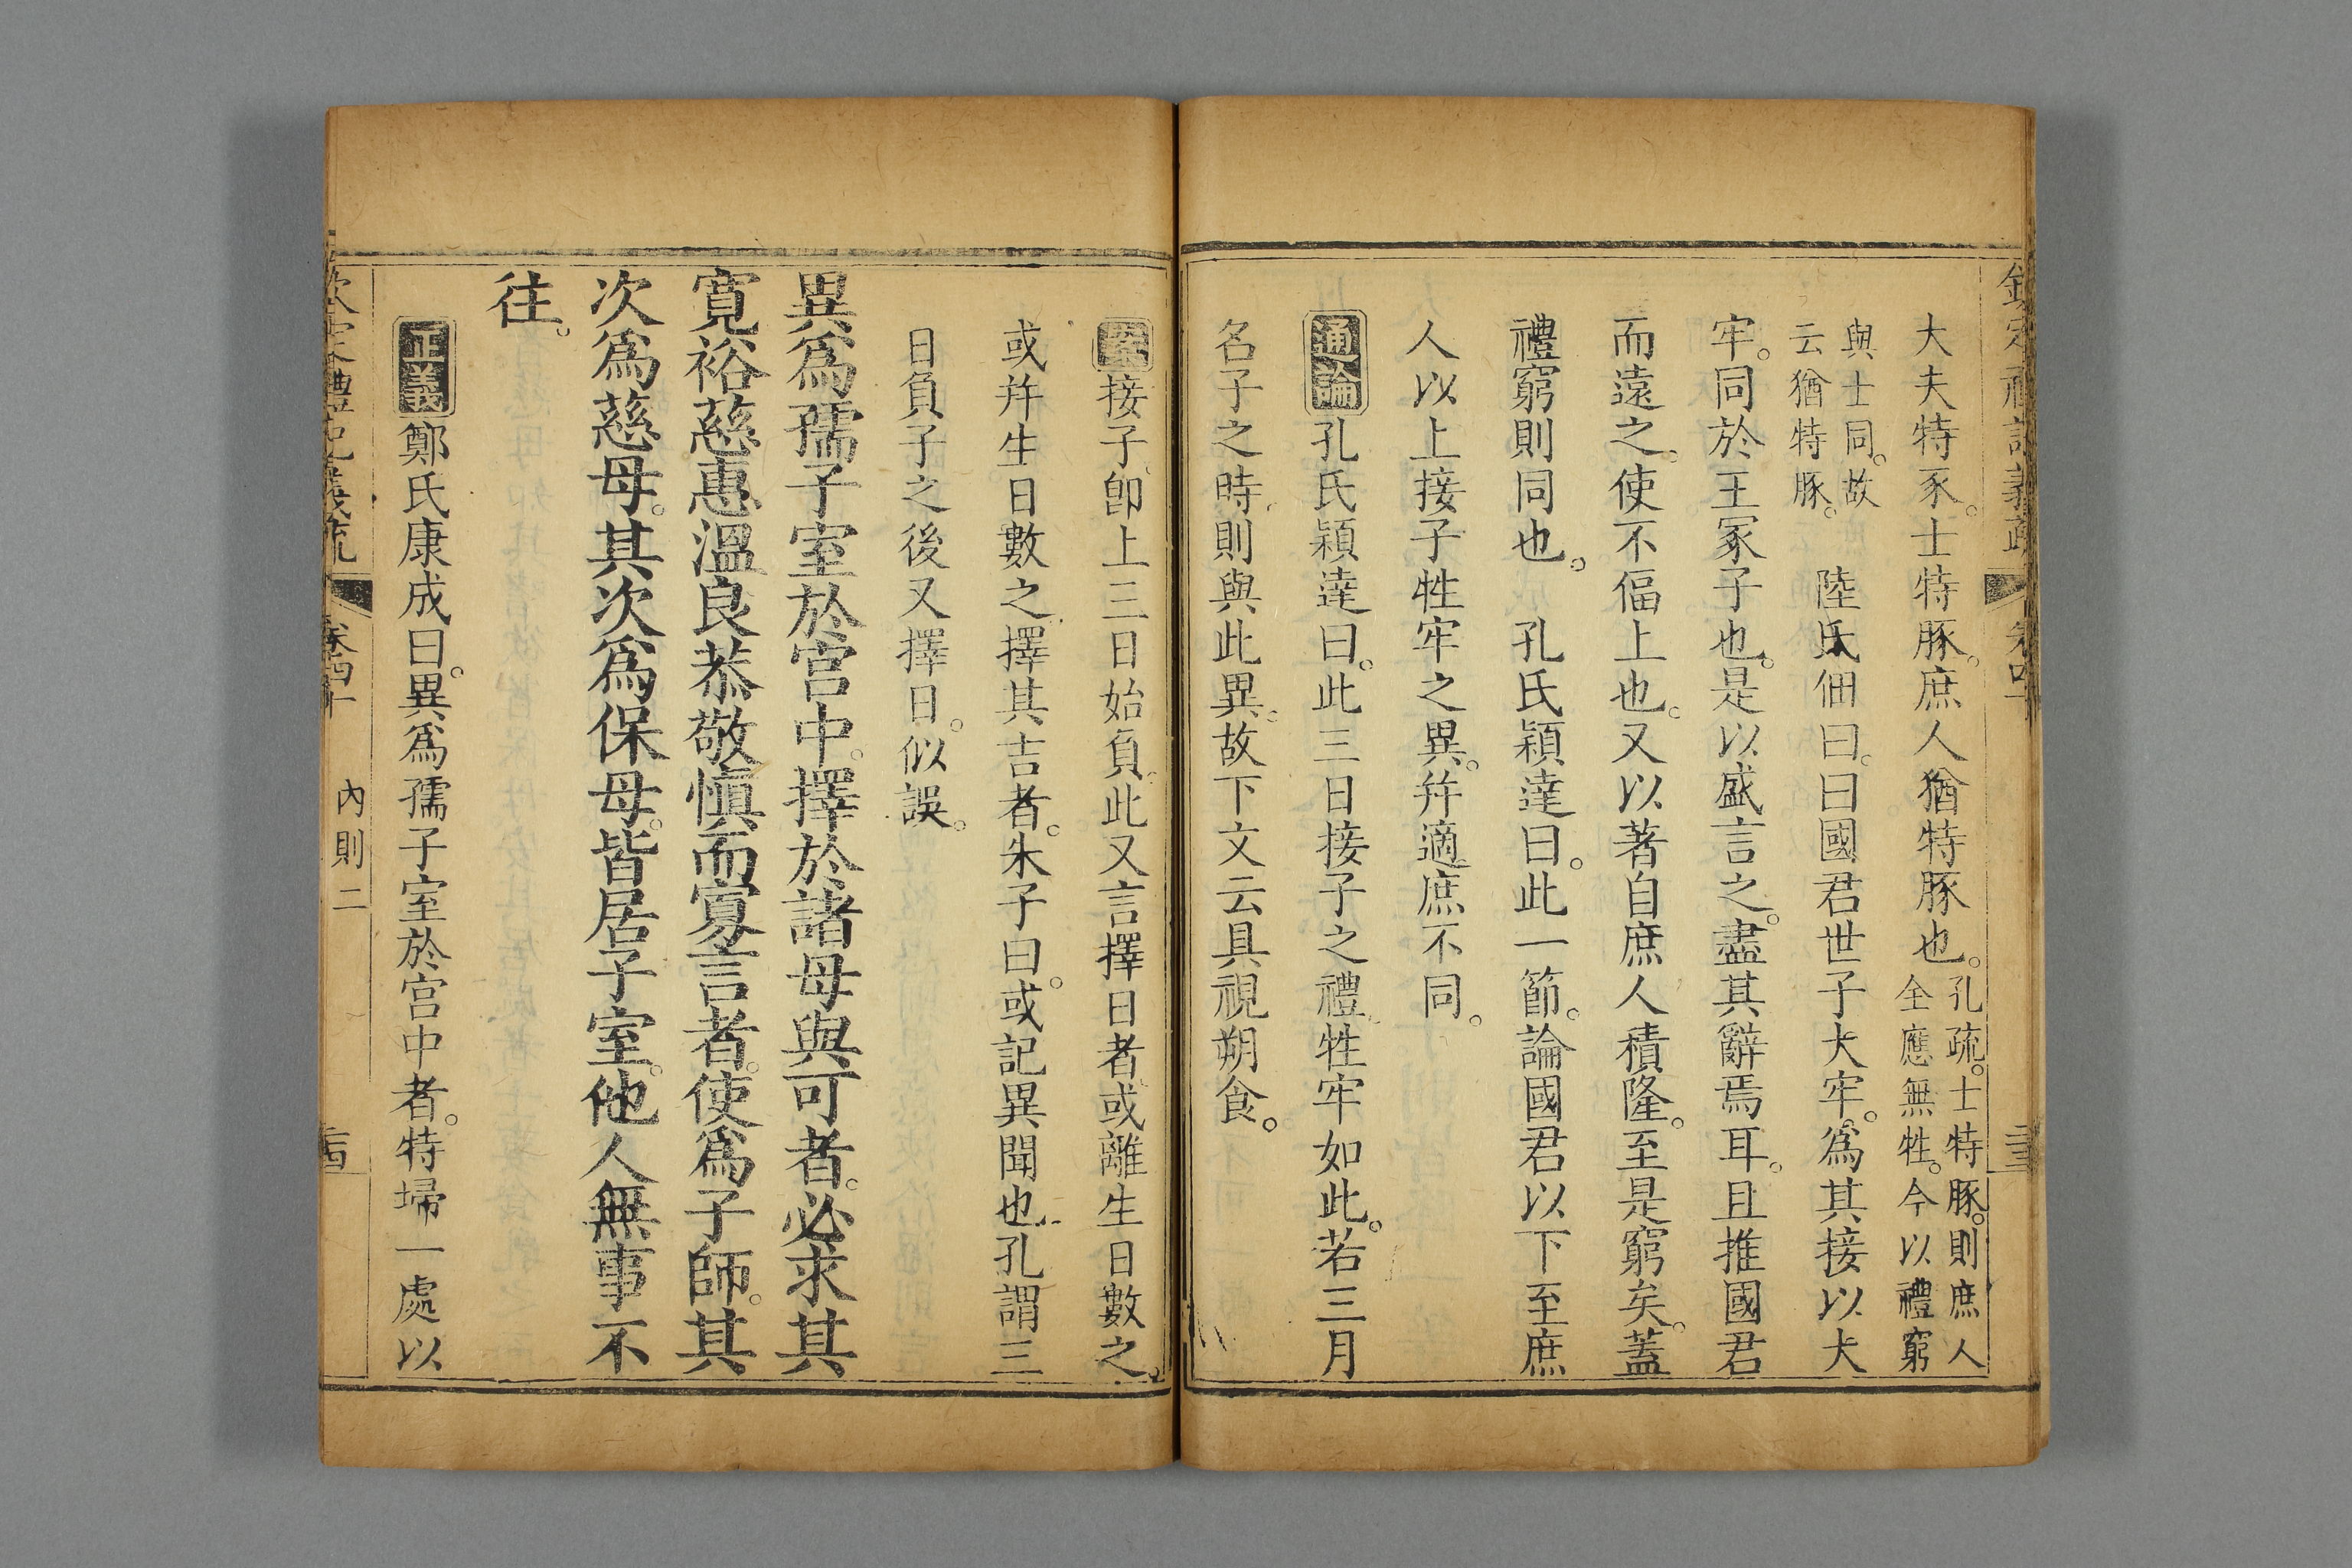 欽定禮記義疏 卷四十 三三
大夫特豕。士特豚。庶人猶特豚也。孔疏。士特豚。則庶人
全應無牲。今以禮窮
與士同。故
云猶特豚。
陸氏佃曰。曰國君世子大牢。為其接以大
牢。同於王冢子也。是以盛言之。盡其辭焉耳。且推國君
而遠之。使不偪上也。又以著自庶人積隆。至是窮矣。蓋
禮窮則同也。 孔氏穎達曰。此一節。論國君以下至庶
人以上接子牲牢之異。并適庶不同。
通論孔氏穎達曰。此三日接子之禮。牲牢如此。若三月
名子之時。則與此異。故下文云具視朔食。
案接子。卽上三日始負。此又言擇日者。或離生日數之。
或并生日數之。擇其吉者。朱子曰。或記異聞也。孔謂三
日負子之後又擇日。似誤。
異爲孺子室於宮中。擇於諸母與可者。必求其
寬裕慈惠溫良恭敬愼而寡言者。使爲子師。其
次爲慈母。其次爲保母。皆居子室。他人無事不
往。
正義鄭氏康成曰。異爲孺子室於宮中者。特埽一處以
欽定禮記義疏 卷四十 內則二